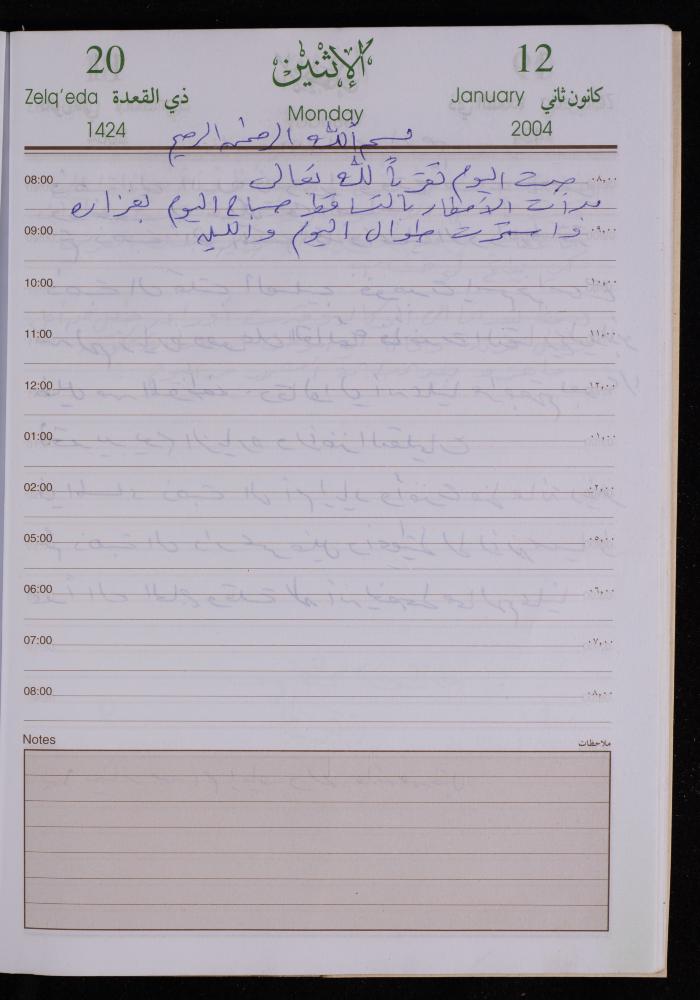 20 الإثنين 12
Zelq'eda ذي القعدة Monday January كانون ثاني
1424 2004
بسم الله الرحمن الرحيم
08:00 صمت اليوم تقرباً لله تعالى ٠٨,٠٠
بدأت الأمطار بالتساقط صباح اليوم بغزاره
09:00 واستمرت طوال اليوم والليل ٠٩,٠٠
10:00 ١٠,٠٠
11:00 ١١,٠٠
12:00 ١٢,٠٠
01:00 ٠١,٠٠
02:00 ٠٢,٠٠
05:00 ٠٥,٠٠
06:00 ٠٦,٠٠
07:00 ٠٧,٠٠
08:00 ٠٨,٠٠
Notes ملاحظات